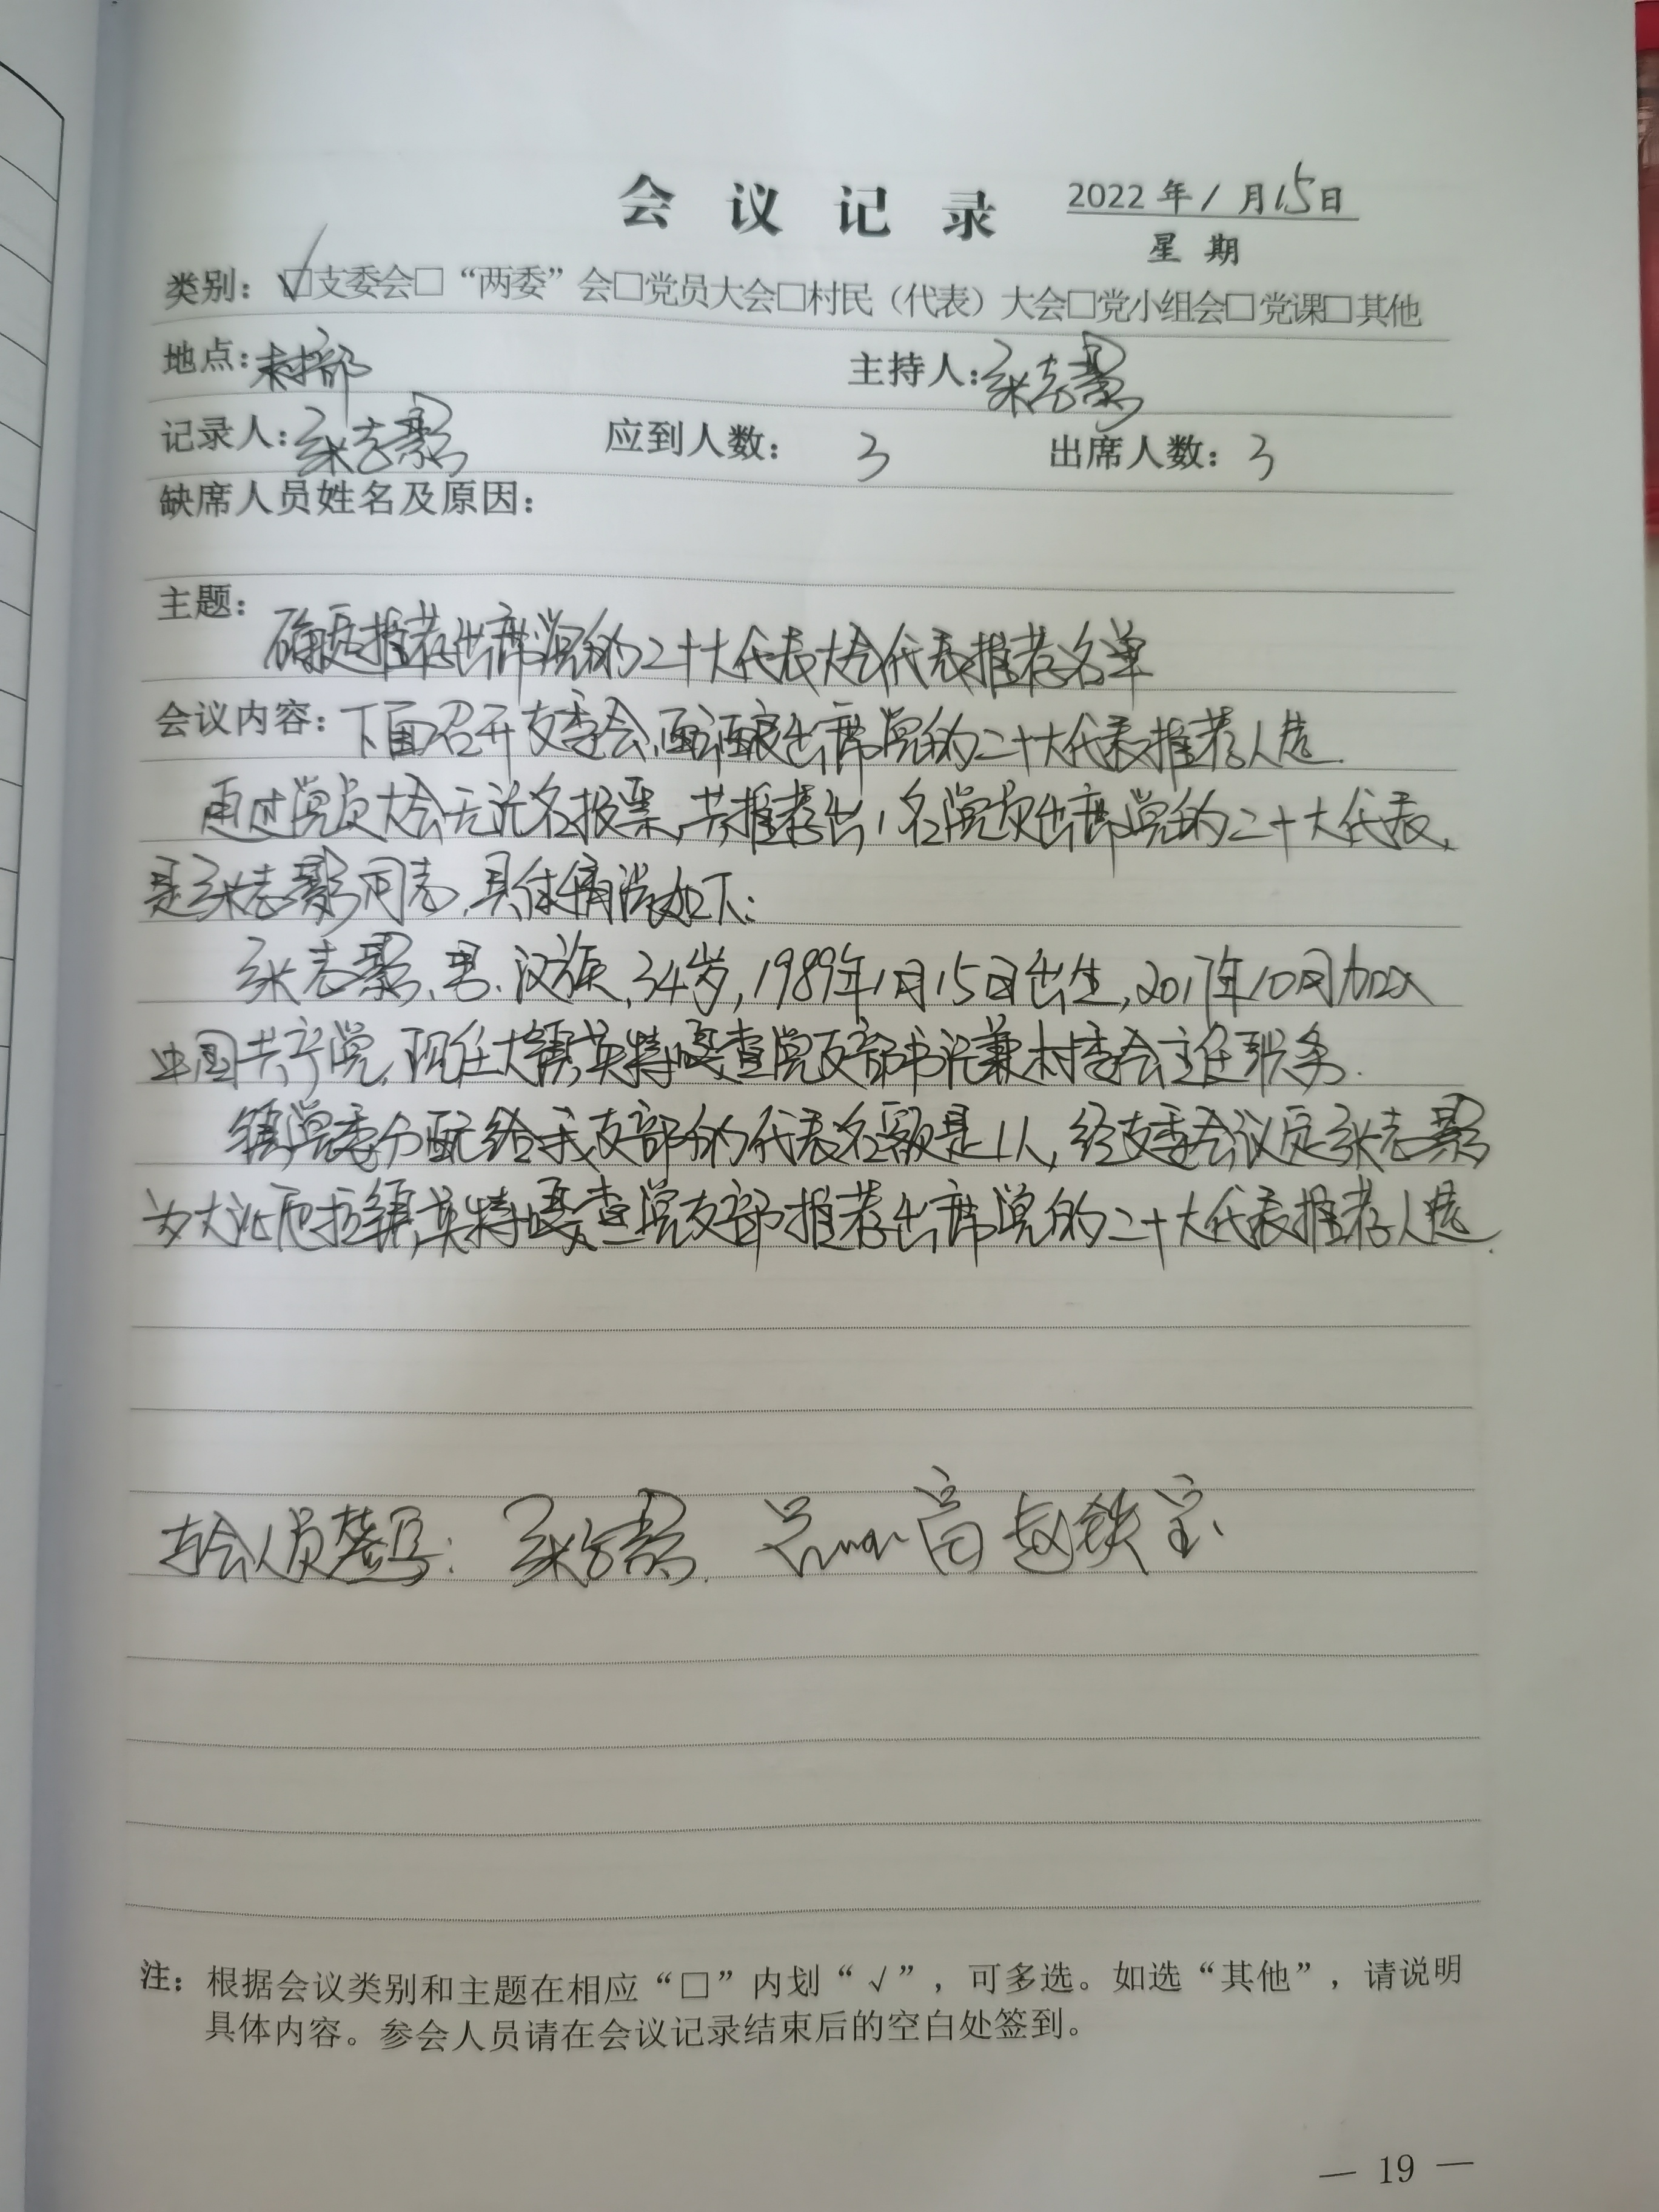 会议记录 2022年1月15日
星期
类别：☑支委会□“两委”会□党员大会□村民（代表）大会□党小组会□党课□其他
地点：村部 主持人：张志影
记录人：张志影 应到人数： 3 出席人数：3
缺席人员姓名及原因：
主题：
确定推荐出席党的二十大代表大会代表推荐名单
会议内容：下面召开支委会，酝酿出席党的二十大代表推荐人选.
通过党员大会无记名投票，共推荐出1名党员出席党的二十大代表，
是张志影同志，具体情况如下：
张志影、男、汉族，34岁，1989年1月15日出生，2017年10月加入
中国共产党，现任大镇英特嘎查党支部书记兼村委会主任职务.
镇党委分配给我支部的代表名额是1人，经支委会议定张志影
为大沁他拉镇英特嘎查党支部推荐出席党的二十大代表推荐人选.
与会人员签字：张志影. 赵铁宝
注：根据会议类别和主题在相应“□”内划“√”，可多选。如选“其他”，请说明
具体内容。参会人员请在会议记录结束后的空白处签到。
— 19 —